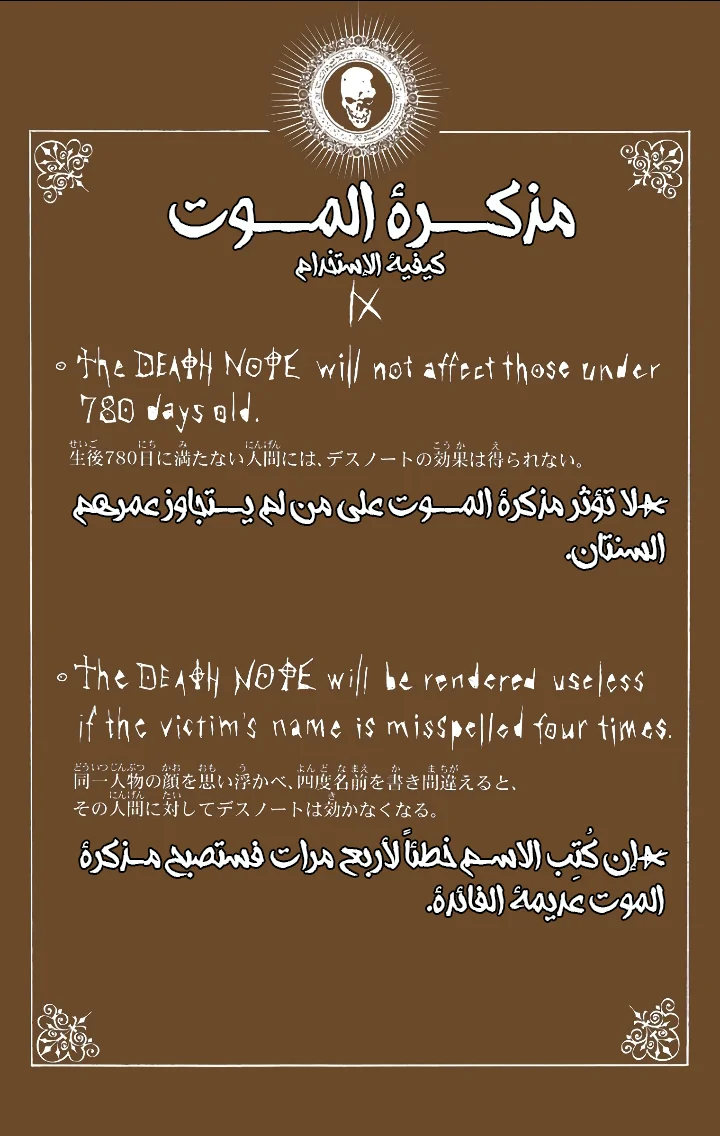 مذكـــرة المـــوت
كيفية الإستخدام
IX
The DEATH NOTE will not affect those under
780 days old.
生後780日に満たない人間には、デスノートの効果は得られない。
*لا تؤثر مذكرة المـــوت على من لم يـــتجاوز عمرهم
السنتان.
The DEATH NOTE will be rendered useless
if the victim's name is misspelled four times.
同一人物の顔を思い浮かべ、四度名前を書き間違えると、
その人間に対してデスノートは効かなくなる。
*إن كُتِب الاسـم خطئاً لأربع مرات فستصبح مـذكرة
الموت عديمة الفائدة.